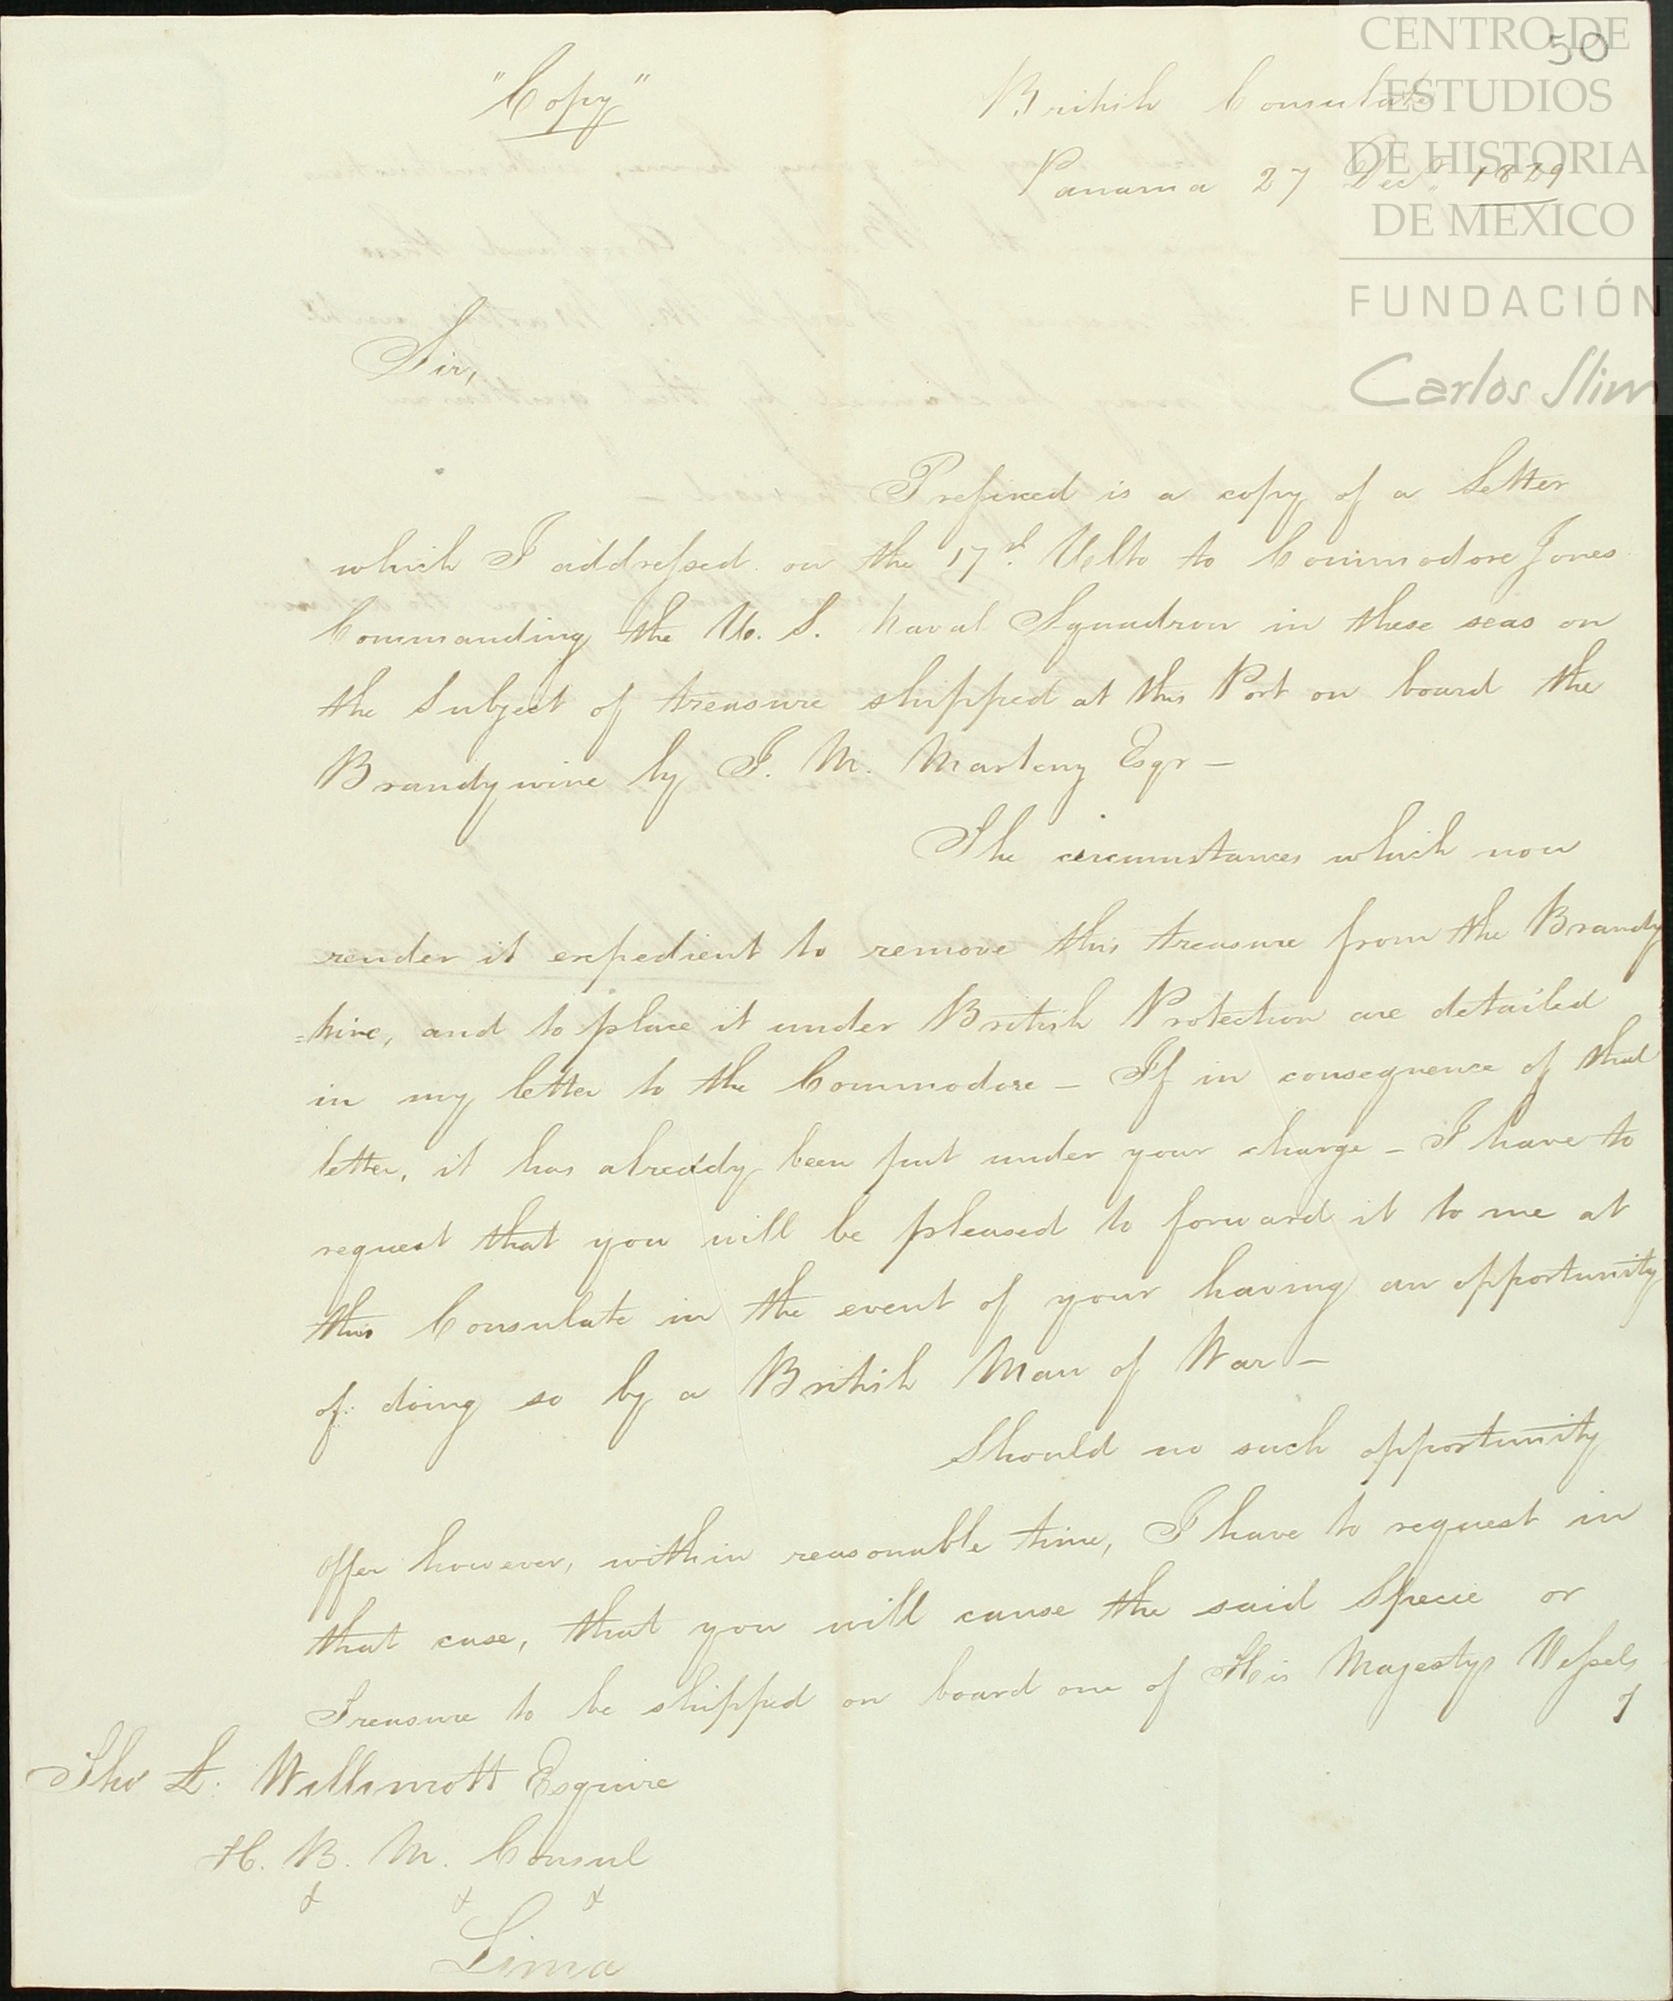 50
CENTRO DE
ESTUDIOS
DE HISTORIA
DE MEXICO
FUNDACIÓN
Carlos Slim
"Copy"
British Consulate
Panama 27 Decr. 1829
Sir,
Prefixed is a copy of a Letter
which I addressed on the 17th. Ulto to Commodore Jones
Commanding the U. S. Naval Squadron in these seas on
the Subject of treasure shipped at this Port on board the
Brandywine by J. M. Marteny Esqr —
The circumstances which now
render it expedient to remove this treasure from the Brandy
=wine, and to place it under British Protection are detailed
in my letter to the Commodore — If in consequence of that
letter, it has already been put under your charge — I have to
request that you will be pleased to forward it to me at
this Consulate in the event of your having an opportunity
of doing so by a British Man of War —
Should no such opportunity
offer however, within reasonable time, I have to request in
that case, that you will cause the said Specie or
Treasure to be shipped on board one of His Majestys Vessels
of
Tho L. Willimott Esquire
H. B. M. Consul
& & &
Lima